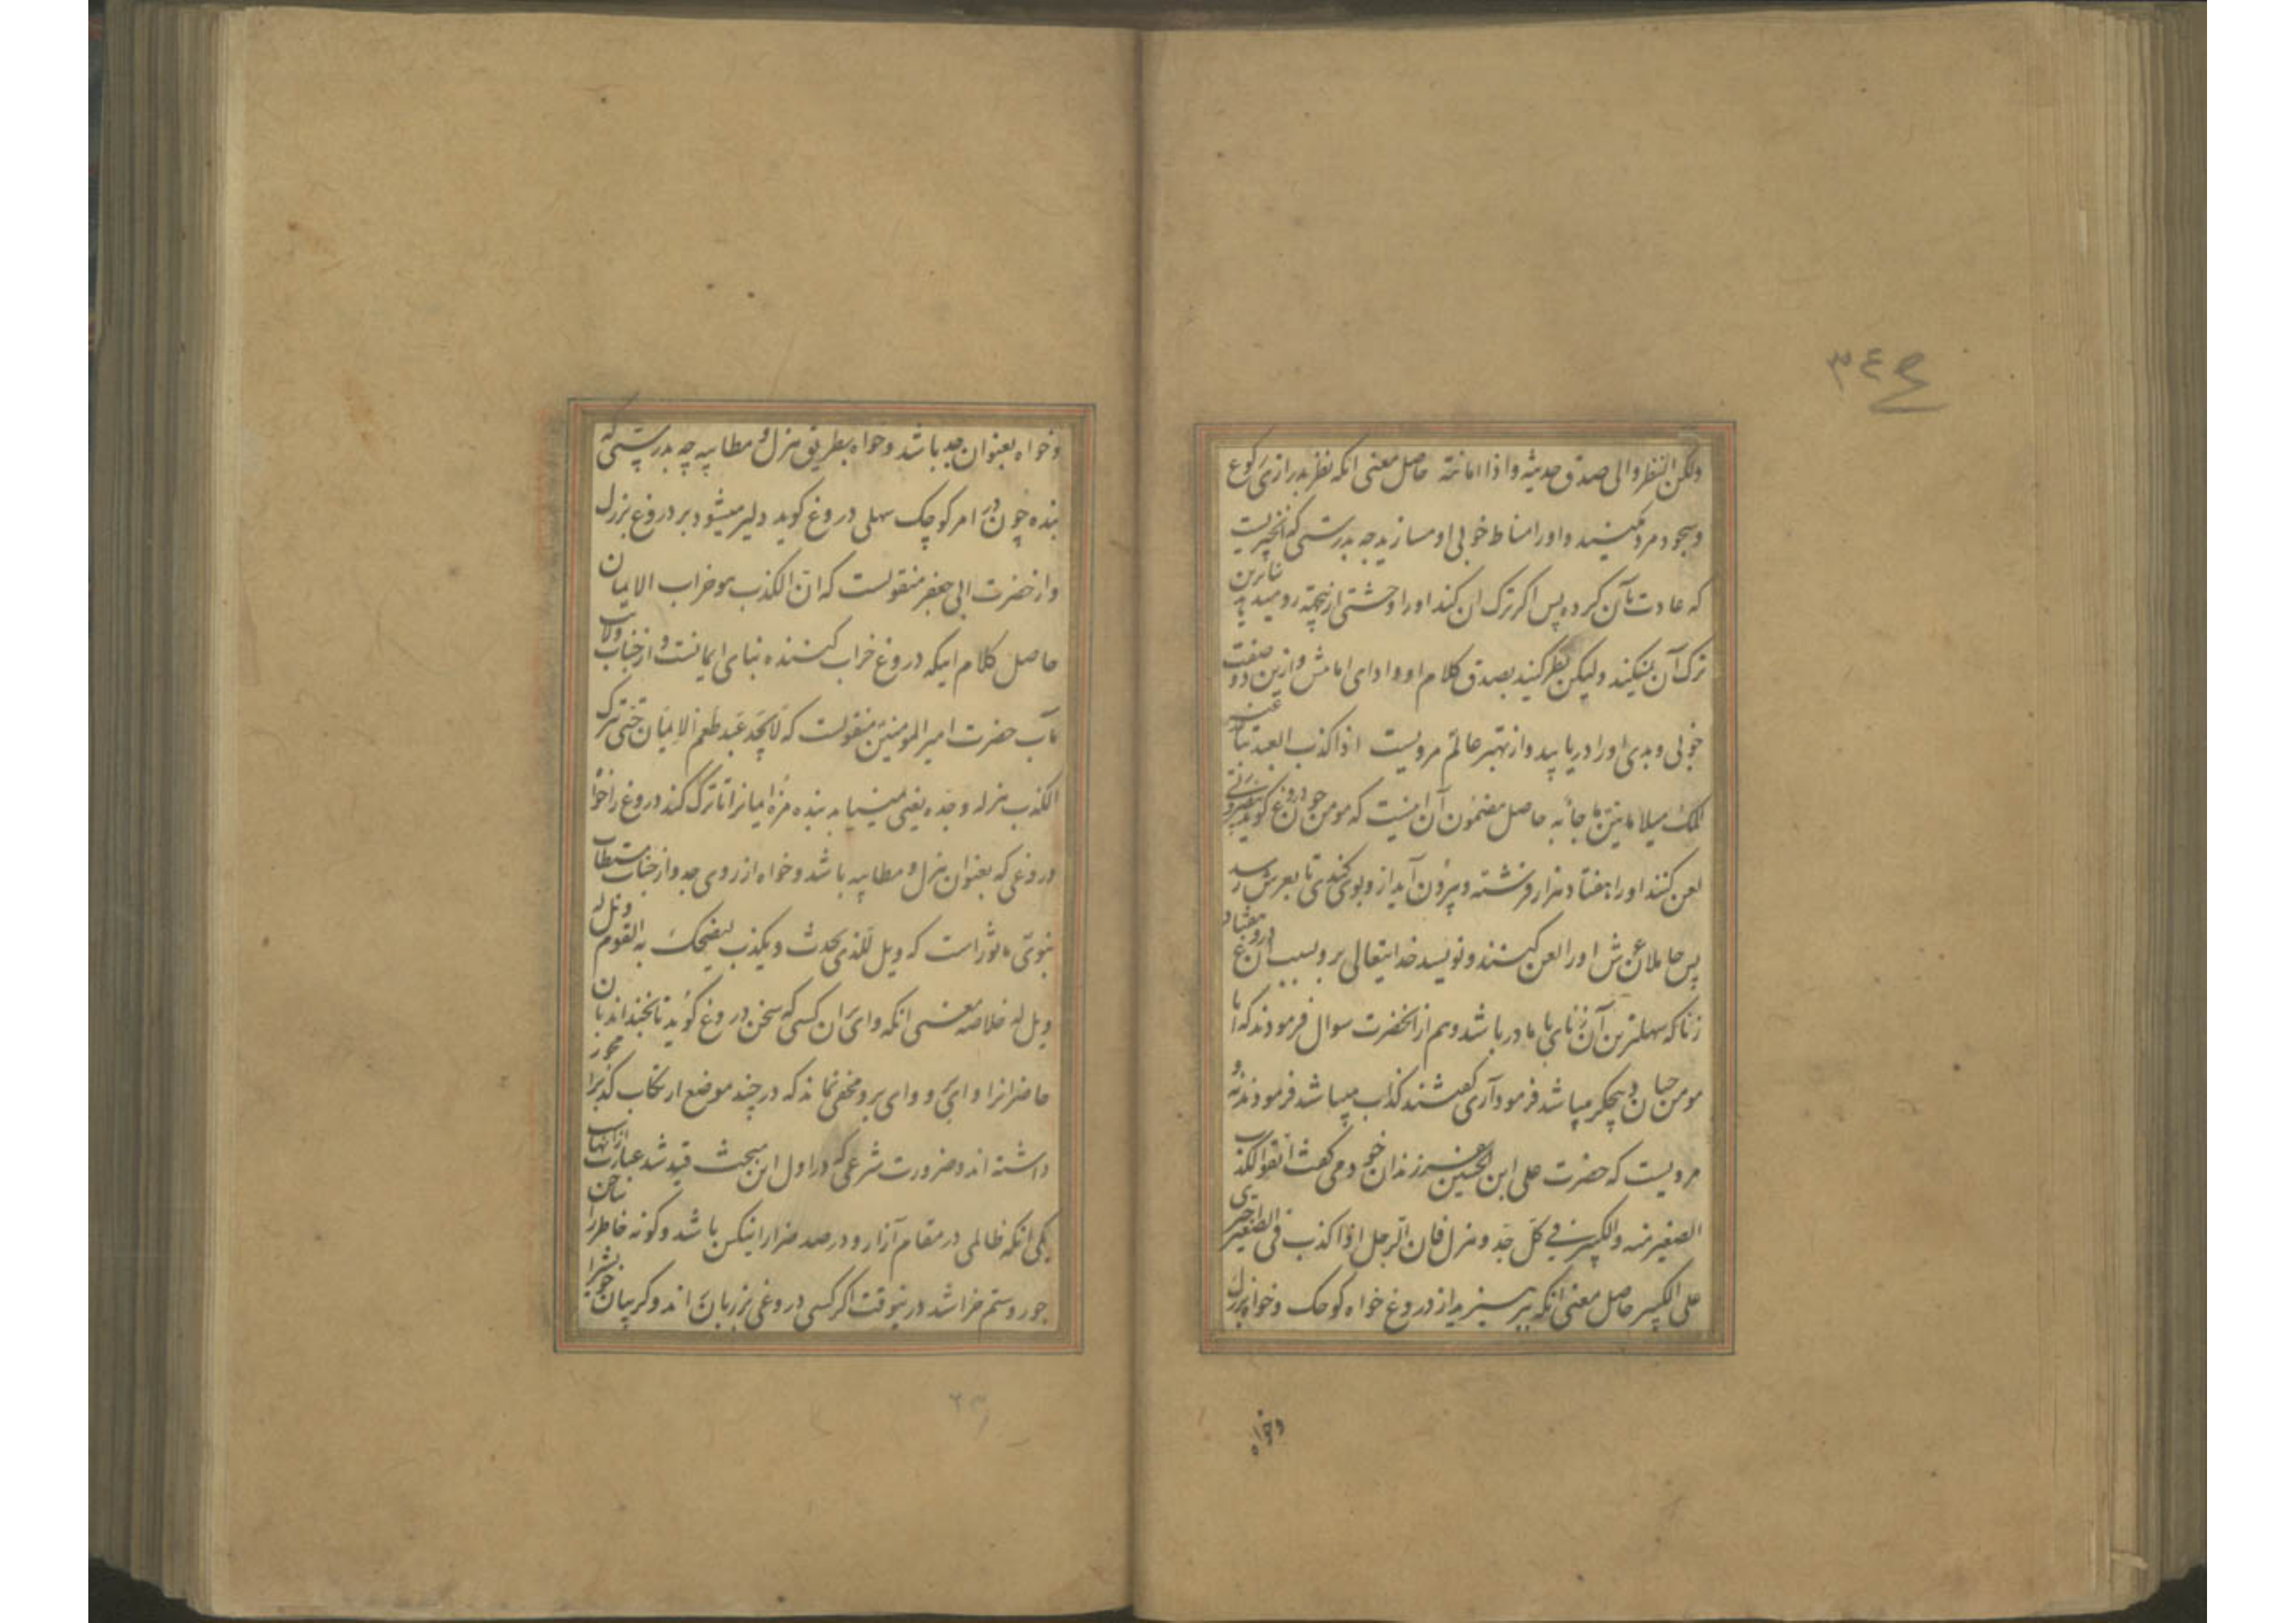 ولکن انظروا الی صدق حدیثه واداء امانته حاصل معنی انکه نظر بدرازی رکوع
وسجود مرد مکنید و اورا مناط خوبی او مسازید چه بدرستی که این چیزیست
که عادت بآن کرده پس اکر ترک ان کند اورا وحشتی ازینجهة رو میدهد بنابرین
ترک آن نمیکند ولیکن نظر کنید بصدق کلام او و ادای امانتش وازین دو صفت
خوبی وبدی اورا دریابید واز بهتر عالم مرویست اذا کذب العبد تباعد عنه
الملک میلا من نتن ما جاء به حاصل مضمون آن اینست که مومن چون دروغ کوید بغیر عذری
لعن کنند اورا هفتاد هزار فرشته وبیرون آید از و بوی کندی تا بعرش رسد
پس حاملان عرش اورا لعن کنند و نویسد خدایتعالی برو بسبب آن دروغ هفتاد
زنا که سهلترین آن زنای با مادر باشد وهم از انحضرت سوال فرمودند که ایا
مومن جبان وبیجکر میباشد فرمود آری کفتند کذاب میباشد فرمودند نه و
مرویست که حضرت علی ابن الحسین بفرزندان خود می کفت اتقوا الکذب
الصغیر منه والکبیر فی کل جد وهزل فان الرجل اذا کذب فی الصغیر اجتری
علی الکبیر حاصل معنی انکه بپرهیزید از دروغ خواه کوچک وخواه بزرک
وخواه
وخواه بعنوان جد باشد وخواه بطریق هزل و مطایبه چه بدرستی که
بنده چون در امر کوچک سهلی دروغ کوید دلیر میشود بر دروغ بزرک
واز حضرت ابی جعفر منقولست که ان الکذب هو خراب الایمان
حاصل کلام اینکه دروغ خراب کننده بنای ایمانست و از جناب ولایت
مآب حضرت امیر المومنین منقولست که لا یجد عبد طعم الایمان حتی یترک
الکذب هزله وجده یعنی نمییابد بنده مزه ایمانرا تا ترک کند دروغ را خواه
دروغی که بعنوان هزل و مطایبه باشد وخواه از روی جد واز جناب مستطاب
نبوی ماثور است که ویل للذی یحدث ویکذب لیضحک به القوم ویل له
ویل له خلاصه معنی انکه وای بران کسی که سخن دروغ کوید تا بخنداند بان
حاضرانرا وای و وای برو مخفی نماند که در چند موضع ارتکاب کذبرا مجوز
داشته اند وضرورت شرعی که در اول این مبحث قید شد عبارت ازانهاست
یکی انکه ظالمی در مقام آزار و درصدد ضرار اینکس باشد وکونه خاطر را بناخن
جور وستم خراشد درینوقت اکر کسی دروغی بر زبان راند وکریبان خویش را